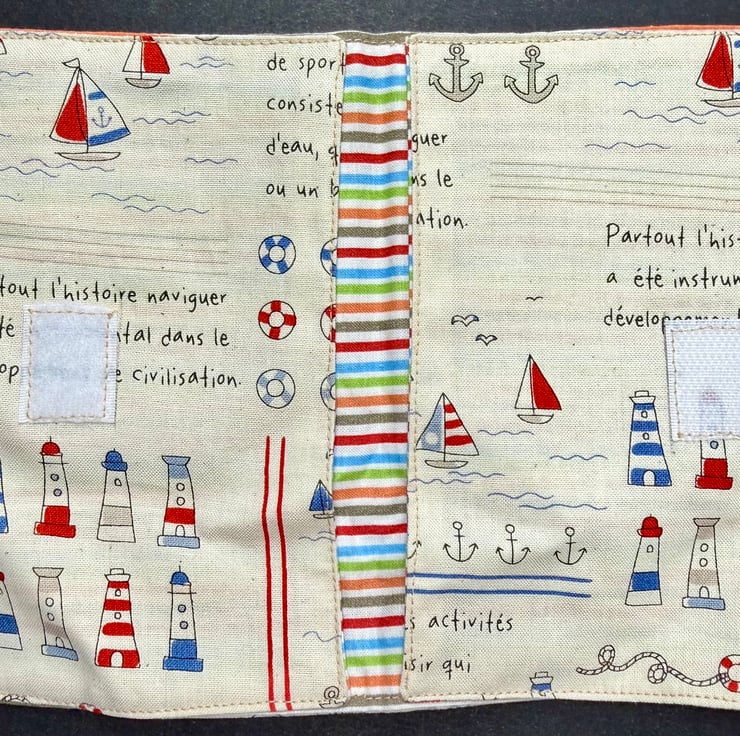 de sport
consiste
d'eau,
ou un
guer
ns le
ation.
tout l'histoire naviguer
té tal dans le
op e civilisation.
Partout l'his
a été instrum
développeme
s activités
isir qui